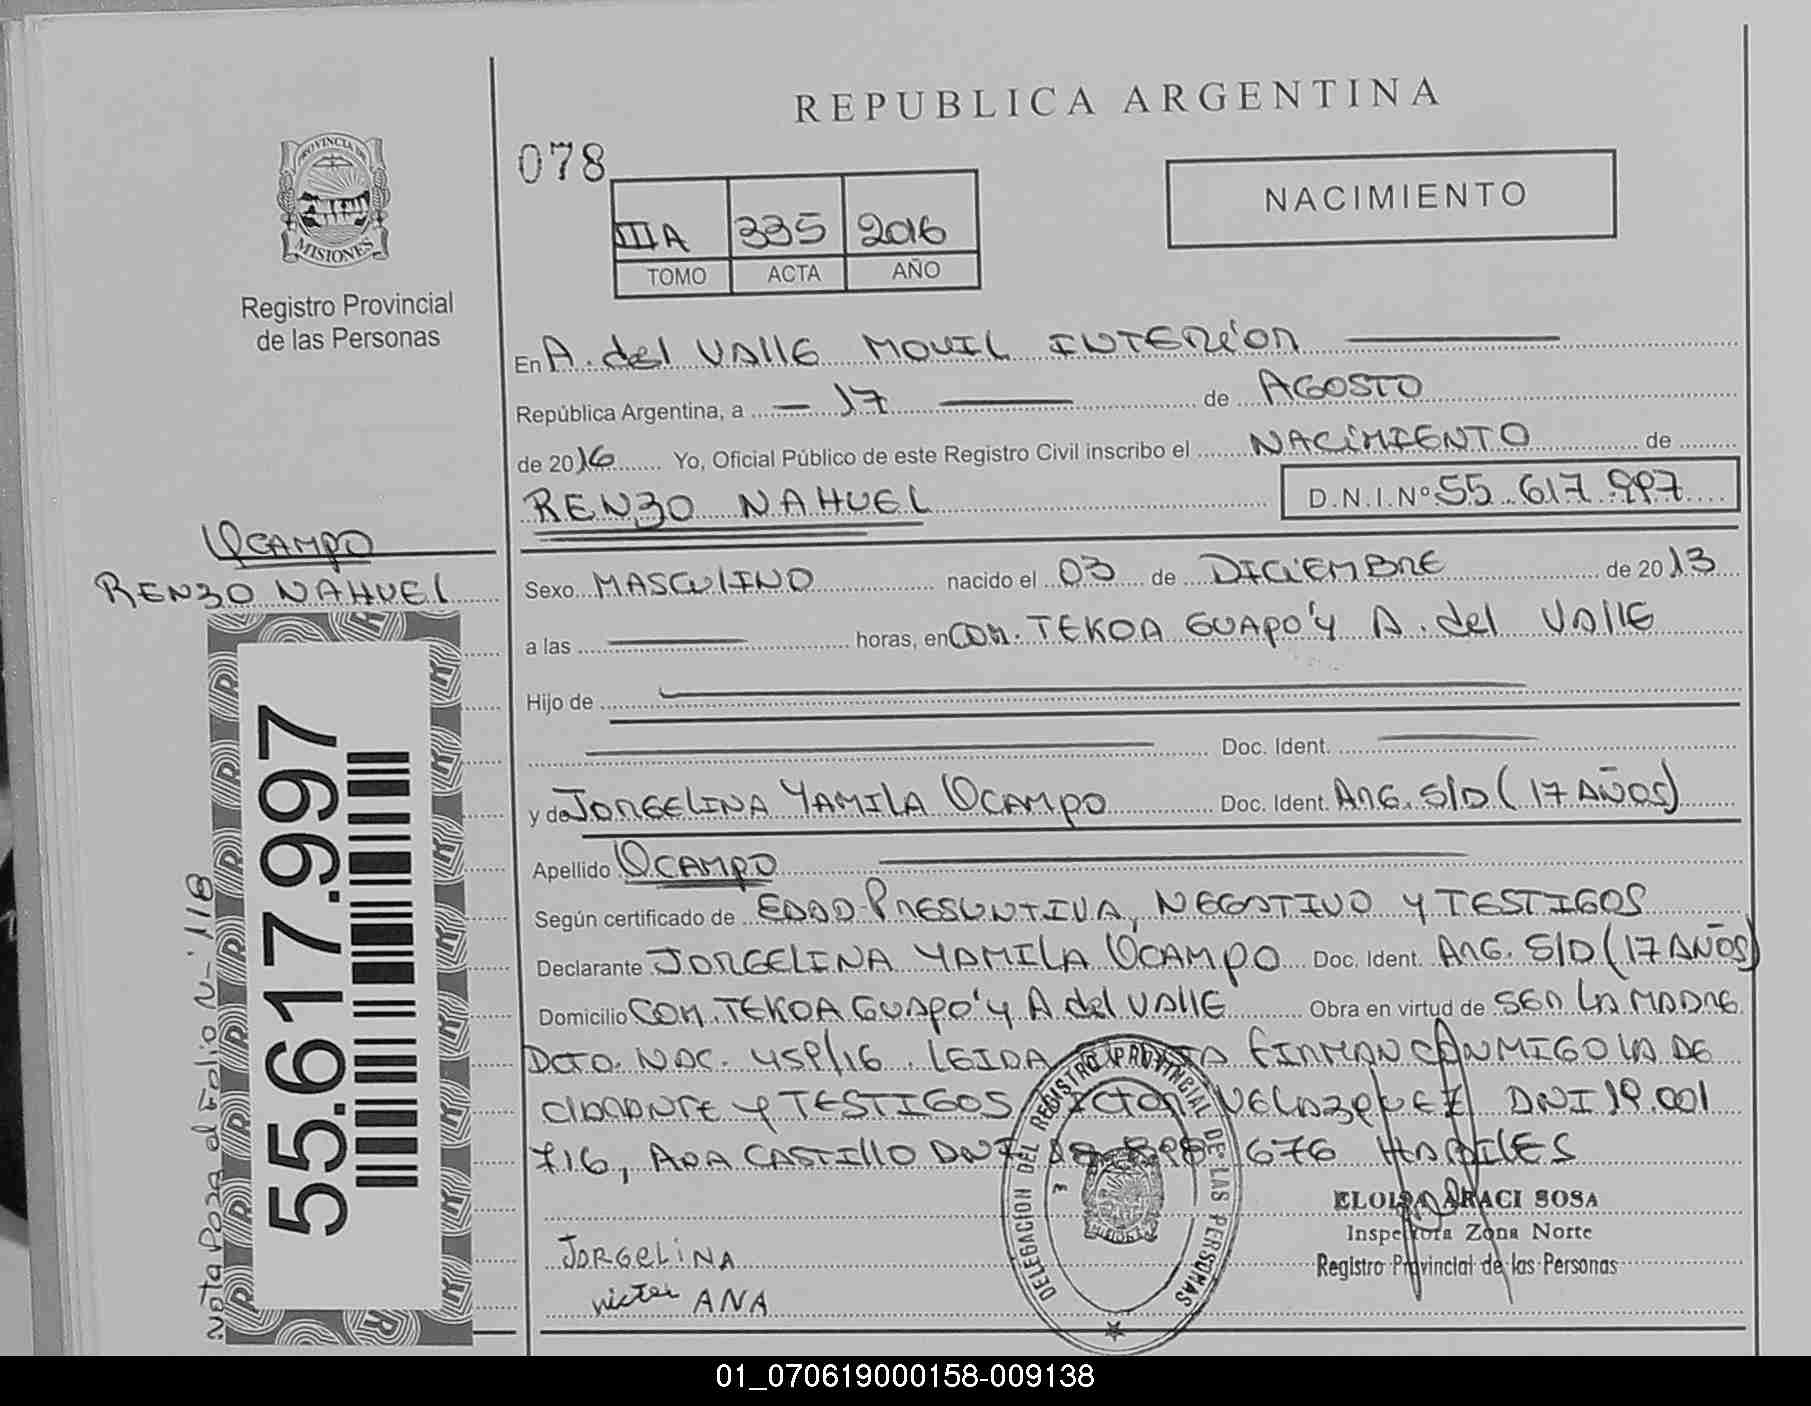 REPUBLICA ARGENTINA
078
NACIMIENTO
PROVINCIA DE
MISIONES
Registro Provincial
de las Personas
IIIA 335 2016
TOMO ACTA AÑO
En A. del VAllE MOVIL INTERIOR
República Argentina, a 17 de AGOSTO
de 2016 Yo, Oficial Público de este Registro Civil inscribo el NACIMIENTO de
RENZO NAHUEL D.N.I.Nº 55.617.997
OCAMPO
RENZO NAHUEL
Sexo MASCULINO nacido el 03 de DICIEMBRE de 2013
a las horas, en COM. TEKOA GUAPO'Y A. del VAllE
Hijo de
Doc. Ident.
y de JORGELINA YAMILA OCAMPO Doc. Ident. ARG. S/D (17 AÑOS)
Apellido OCAMPO
Según certificado de EDAD PRESUNTIVA, NEGATIVO Y TESTIGOS
Declarante JORGELINA YAMILA OCAMPO Doc. Ident. ARG. S/D (17 AÑOS)
Domicilio COM. TEKOA GUAPO'Y A del VAllE Obra en virtud de SER LA MADRE
DCTO. NAC. 459/16 LEIDA FIRMAN CONMIGO LA DE
CLARANTE Y TESTIGOS VICTOR VELAZQUEZ DNI 19.001
716, ANA CASTILLO DNI 676 HABILES
55.617.997
Nota Pasa al Folio Nº 118
DELEGACION DEL REGISTRO PROVINCIAL DE LAS PERSONAS
ELOISA ARACI SOSA
Inspectora Zona Norte
Registro Provincial de las Personas
JORGELINA
victor ANA
01_070619000158-009138